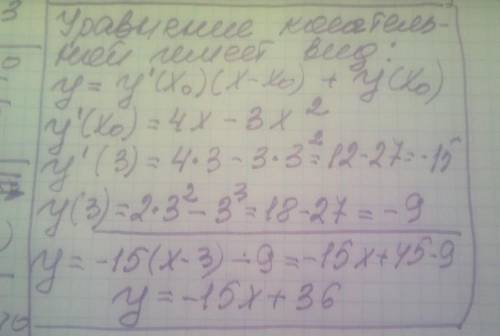 Уравнение касатель-
ной имеет вид:
y = y'(x₀)(x-x₀) + y(x₀)
y'(x₀) = 4x - 3x²
y'(3) = 4·3 - 3·3² = 12-27 = -15
y(3) = 2·3² - 3³ = 18-27 = -9
y = -15(x-3) - 9 = -15x+45-9
y = -15x + 36